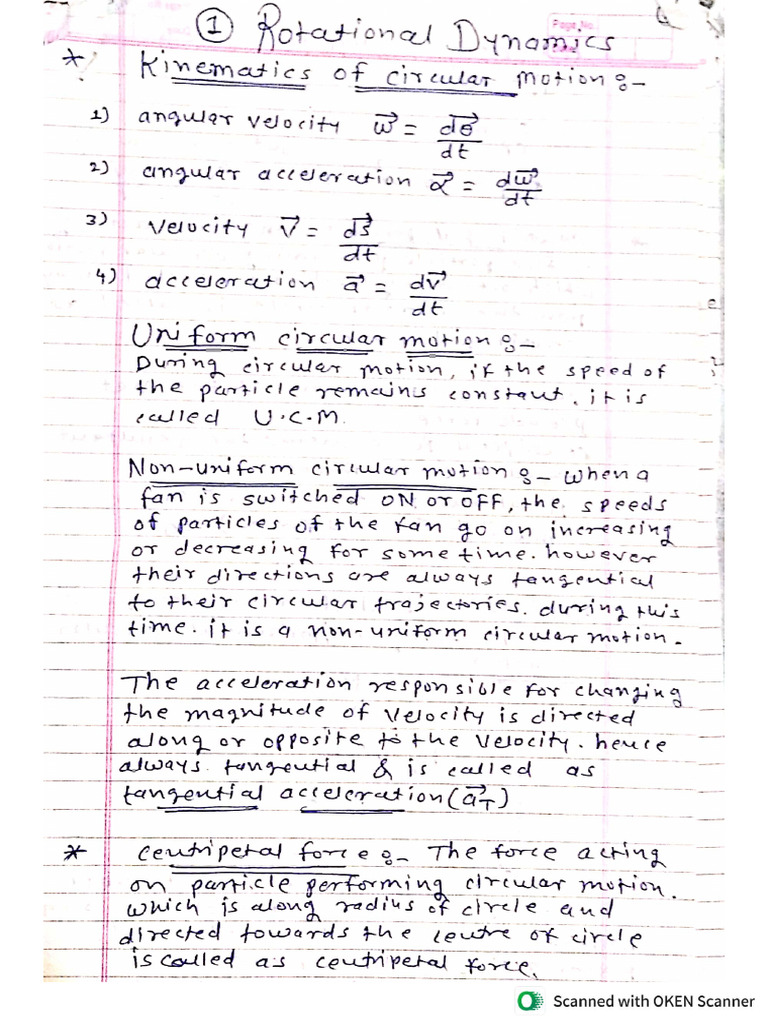 ① Rotational Dynamics
Page No.
* Kinematics of circular motion :-
1) angular velocity w⃗ = dθ⃗/dt
2) angular acceleration α⃗ = dw⃗/dt
3) velocity v⃗ = ds⃗/dt
4) acceleration a⃗ = dv⃗/dt
Uniform circular motion :-
During circular motion, if the speed of
the particle remains constant. it is
called U.C.M.
Non-uniform circular motion :- when a
fan is switched ON or OFF, the speeds
of particles of the fan go on increasing
or decreasing for some time. however
their directions are always tangential
to their circular trajectories. during this
time. it is a non-uniform circular motion.
The acceleration responsible for changing
the magnitude of velocity is directed
along or opposite to the velocity. hence
always tangential & is called as
tangential acceleration (a⃗T)
* Centripetal force :- The force acting
on particle performing circular motion.
which is along radius of circle and
directed towards the centre of circle
is called as centripetal force.
Scanned with OKEN Scanner